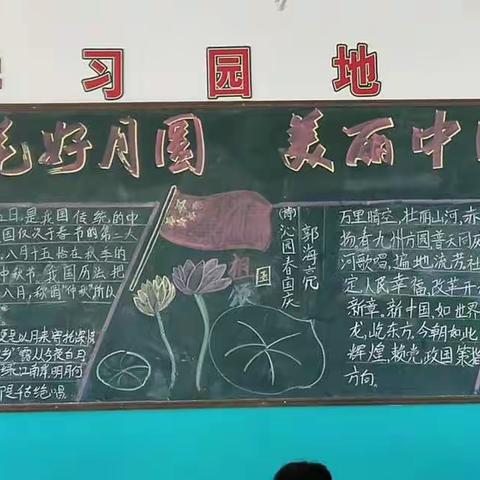 习园地
花好月圆 美丽中国
五日,是我国传统的中
国仅次于春节的第二大
八月十五恰在秋季的
中秋节。我国历法把
八月,称因"仲秋"所以
更是以月来寄托深情
乡"露从今夜白月
绿江南岸明月何
是千古绝唱。
祖国
颂
沁园春国庆
郭海亮
万里晴空,壮丽山河,亦
扬看九州方圆普天同庆
河歌唱,遍地流芳社
定,人民幸福,改革开
新章。新中国,如世界
龙,屹东方。今朝如此
辉煌,赖党政国策
方向。